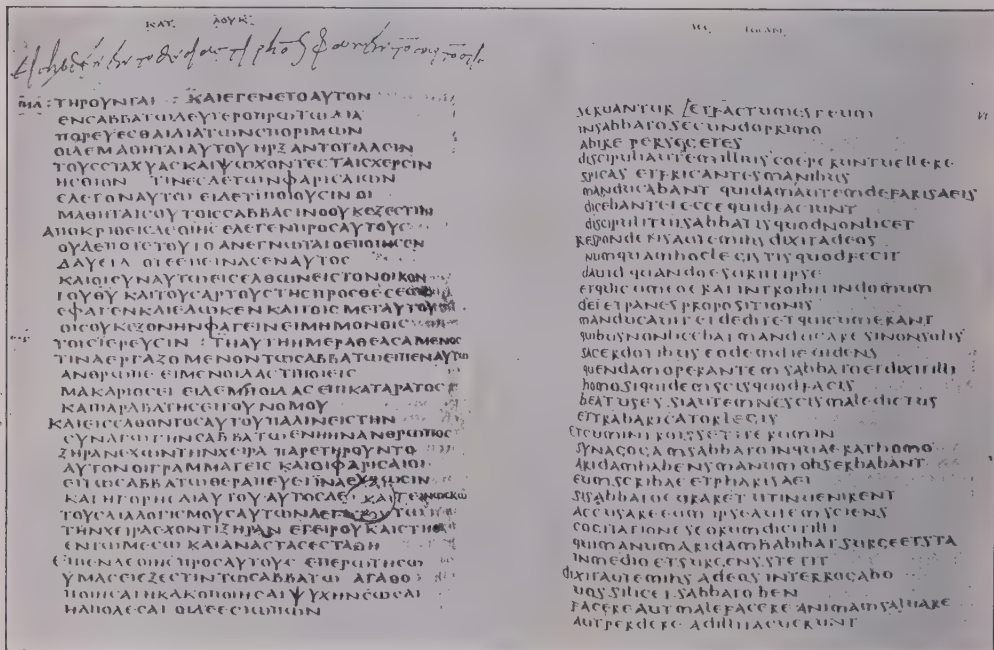 ΚΑΤ ΛΟΥΚ
ΤΗΡΟΥΝΤΑΙ : ΚΑΙΕΓΕΝΕΤΟΑΥΤΟΝ
ΕΝΣΑΒΒΑΤΩΔΕΥΤΕΡΟΠΡΩΤΩΔΙΑ
ΠΟΡΕΥΕΣΘΑΙΔΙΑΤΩΝΣΠΟΡΙΜΩΝ
ΟΙΔΕΜΑΘΗΤΑΙΑΥΤΟΥΗΡΞΑΝΤΟΤΙΛΛΕΙΝ
ΤΟΥΣΣΤΑΧΥΑΣΚΑΙΨΩΧΟΝΤΕΣΤΑΙΣΧΕΡΣΙΝ
ΗΣΘΙΟΝ ΤΙΝΕΣΔΕΤΩΝΦΑΡΙΣΑΙΩΝ
ΕΛΕΓΟΝΑΥΤΩ ΕΙΔΕΤΙΠΟΙΟΥΣΙΝΟΙ
ΜΑΘΗΤΑΙΣΟΥΤΟΙΣΣΑΒΒΑΣΙΝΟΟΥΚΕΞΕΣΤΙΝ
ΑΠΟΚΡΙΘΕΙΣΔΕΟΙΗΣ ΕΛΕΓΕΝΠΡΟΣΑΥΤΟΥΣ
ΟΥΔΕΠΟΤΕΤΟΥΤΟΑΝΕΓΝΩΤΑΙΟΕΠΟΙΗΣΕΝ
ΔΑΥΕΙΔ ΟΤΕΕΠΕΙΝΑΣΕΝΑΥΤΟΣ
ΚΑΙΟΙΣΥΝΑΥΤΩΕΙΣΕΛΘΩΝΕΙΣΤΟΝΟΙΚΟΝ
ΤΟΥΘΥ ΚΑΙΤΟΥΣΑΡΤΟΥΣΤΗΣΠΡΟΣΘΕΣΕΩΣ
ΕΦΑΓΕΝΚΑΙΕΔΩΚΕΝΚΑΙΤΟΙΣΜΕΤΑΥΤΟΥ
ΟΙΣΟΥΚΕΞΟΝΗΝΦΑΓΕΙΝΕΙΜΗΜΟΝΟΙΣ
ΤΟΙΣΙΕΡΕΥΣΙΝ : ΤΗΑΥΤΗΗΜΕΡΑΘΕΑΣΑΜΕΝΟΣ
ΤΙΝΑΕΡΓΑΖΟΜΕΝΟΝΤΩΣΑΒΒΑΤΩΕΙΠΕΝΑΥΤΩ
ΑΝΘΡΩΠΕ ΕΙΜΕΝΟΙΔΑΣΤΙΠΟΙΕΙΣ
ΜΑΚΑΡΙΟΣΕΙ ΕΙΔΕΜΗΟΙΔΑΣΕΠΙΚΑΤΑΡΑΤΟΣ
ΚΑΙΠΑΡΑΒΑΤΗΣΕΙΤΟΥΝΟΜΟΥ
ΚΑΙΕΙΣΕΛΘΟΝΤΟΣΑΥΤΟΥΠΑΛΙΝΕΙΣΤΗΝ
ΣΥΝΑΓΩΓΗΝΣΑΒΒΑΤΩΕΝΗΗΝΑΝΘΡΩΠΟΣ
ΞΗΡΑΝΕΧΩΝΤΗΝΧΕΙΡΑ ΠΑΡΕΤΗΡΟΥΝΤΟ
ΑΥΤΟΝΟΙΓΡΑΜΜΑΤΕΙΣ ΚΑΙΟΙΦΑΡΙΣΑΙΟΙ
ΕΙΤΩΣΑΒΒΑΤΩΘΕΡΑΠΕΥΕΙΙΝΑΕΥΡΩΣΙΝ
ΚΑΤΗΓΟΡΗΣΑΙΑΥΤΟΥ ΑΥΤΟΣΔΕ ΓΕΙΝΩΣΚΩΝ
ΤΟΥΣΔΙΑΛΟΓΙΣΜΟΥΣΑΥΤΩΝΛΕΓΕΙΤΩ
ΤΗΝΧΕΙΡΑΕΧΟΝΤΙΞΗΡΑΝ ΕΓΕΙΡΟΥΚΑΙΣΤΗΘΙ
ΕΝΤΩΜΕΣΩ ΚΑΙΑΝΑΣΤΑΣΕΣΤΑΘΗ
ΕΙΠΕΝΔΕΟΙΗΣ ΠΡΟΣΑΥΤΟΥΣ ΕΠΕΡΩΤΗΣΩ
ΥΜΑΣΕΙΕΞΕΣΤΙΝΤΩΣΑΒΒΑΤΩ ΑΓΑΘΟ
ΠΟΙΗΣΑΙΗΚΑΚΟΠΟΙΗΣΑΙΨΥΧΗΝΣΩΣΑΙ
ΗΑΠΟΛΕΣΑΙ ΟΙΔΕΕΣΙΩΠΩΝ
SERUANTUR ETFACTUMESTEUM
INSABBATOSECUNDOPRIMO
ABIRE PERSEGETES
DISCIPULIAUTEMILLIUS COEPERUNTUELLERE
SPICAS ETFRICANTESMANIBUS
MANDUCABANT QUIDAMAUTEMDEFARISAEIS
DICEBANTEI ECCEQUIDFACIUNT
DISCIPULITUISABBATISQUODNONLICET
RESPONDENSAUTEMIHSDIXITADEOS
NUMQUAMHOCLEGISTISQUODFECIT
DAUIDQUANDOESURIITIPSE
ETQUICUMEOERAT INTROIBITINDOMUM
DEI ETPANESPROPOSITIONIS
MANDUCAUIT ETDEDITETQUICUMERANT
QUIBUSNONLICEBATMANDUCARE SINONSOLIS
SACERDOTIBUS EODEMDIEUIDENS
QUENDAMOPERANTEMSABBATOETDIXITILLI
HOMOSIQUIDEMSCISQUODFACIS
BEATUSES SIAUTEMNESCISMALEDICTUS
ETTRABARICATORLEGIS
ETCUMINTROISSETITERUMIN
SYNAGOGAMSABBATOINQUAERATHOMO
ARIDAMHABENSMANUMOBSERBABANT
EUMSCRIBAE ETPHARISAEI
SISABBATOCURARET UTINUENIRENT
ACCUSAREEUM IPSEAUTEMSCIENS
COGITATIONESEORUMDICITILLI
QUIMANUMARIDAMHABEBAT SURGEETSTA
INMEDIOETSURGENSSTETIT
DIXITAUTEMIHS ADEOS INTERROGABO
UOSSILICETSABBATOBEN
FACERE AUTMALEFACERE ANIMAMSALUARE
AUTPERDERE ADILLITACUERUNT